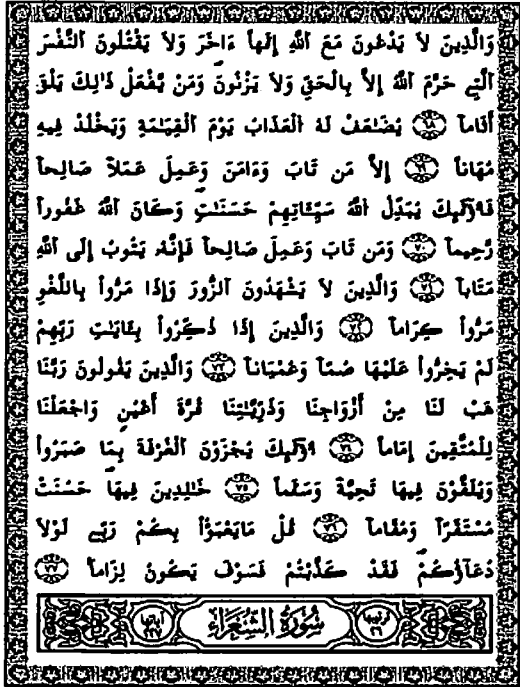 وَالذِينَ لاَ يَدْعُونَ مَعَ اَ۬للَّهِ إِلَٰهاً ءَاخَرَ وَلاَ يَقْتُلُونَ اَ۬لنَّفْسَ
اَ۬لتِے حَرَّمَ اَ۬للَّهُ إِلاَّ بِالْحَقِّ وَلاَ يَزْنُونَۖ وَمَنْ يَّفْعَلْ ذَٰلِكَ يَلْقَ
أَثَاماً ٦٨ يُضَٰعَفْ لَهُ اُ۬لْعَذَابُ يَوْمَ اَ۬لْقِيَٰمَةِ وَيَخْلُدْ فِيهِ
مُهَاناً ٦٩ إِلاَّ مَن تَابَ وَءَامَنَ وَعَمِلَ عَمَلاً صَٰلِحاً
فَأُوْلَٰٓئِكَ يُبَدِّلُ اُ۬للَّهُ سَيِّـَٔاتِهِمْ حَسَنَٰتٖۖ وَكَانَ اَ۬للَّهُ غَفُوراً
رَّحِيماً ٧٠ وَمَن تَابَ وَعَمِلَ صَٰلِحاً فَإِنَّهُۥ يَتُوبُ إِلَى اَ۬للَّهِ
مَتَاباً ٧١ وَالذِينَ لاَ يَشْهَدُونَ اَ۬لزُّورَ وَإِذَا مَرُّواْ بِاللَّغْوِ
مَرُّواْ كِرَاماً ٧٢ وَالذِينَ إِذَا ذُكِّرُواْ بِـَٔايَٰتِ رَبِّهِمْ
لَمْ يَخِرُّواْ عَلَيْهَا صُمّاً وَعُمْيَاناً ٧٣ وَالذِينَ يَقُولُونَ رَبَّنَا
هَبْ لَنَا مِنْ أَزْوَٰجِنَا وَذُرِّيَّٰتِنَا قُرَّةَ أَعْيُنٖ وَاجْعَلْنَا
لِلْمُتَّقِينَ إِمَاماً ٧٤ أُوْلَٰٓئِكَ يُجْزَوْنَ اَ۬لْغُرْفَةَ بِمَا صَبَرُواْ
وَيُلَقَّوْنَ فِيهَا تَحِيَّةً وَسَلَٰماً ٧٥ خَٰلِدِينَ فِيهَاۖ حَسُنَتْ
مُسْتَقَرّاً وَمُقَاماً ٧٦ قُلْ مَا يَعْبَؤُاْ بِكُمْ رَبِّے لَوْلاَ
دُعَآؤُكُمْۖ فَقَدْ كَذَّبْتُمْ فَسَوْفَ يَكُونُ لِزَاماً ٧٧
ترتيبها ٢٦ سُورَةُ الشُّعَرَاءِ آياتها ٢٢٧